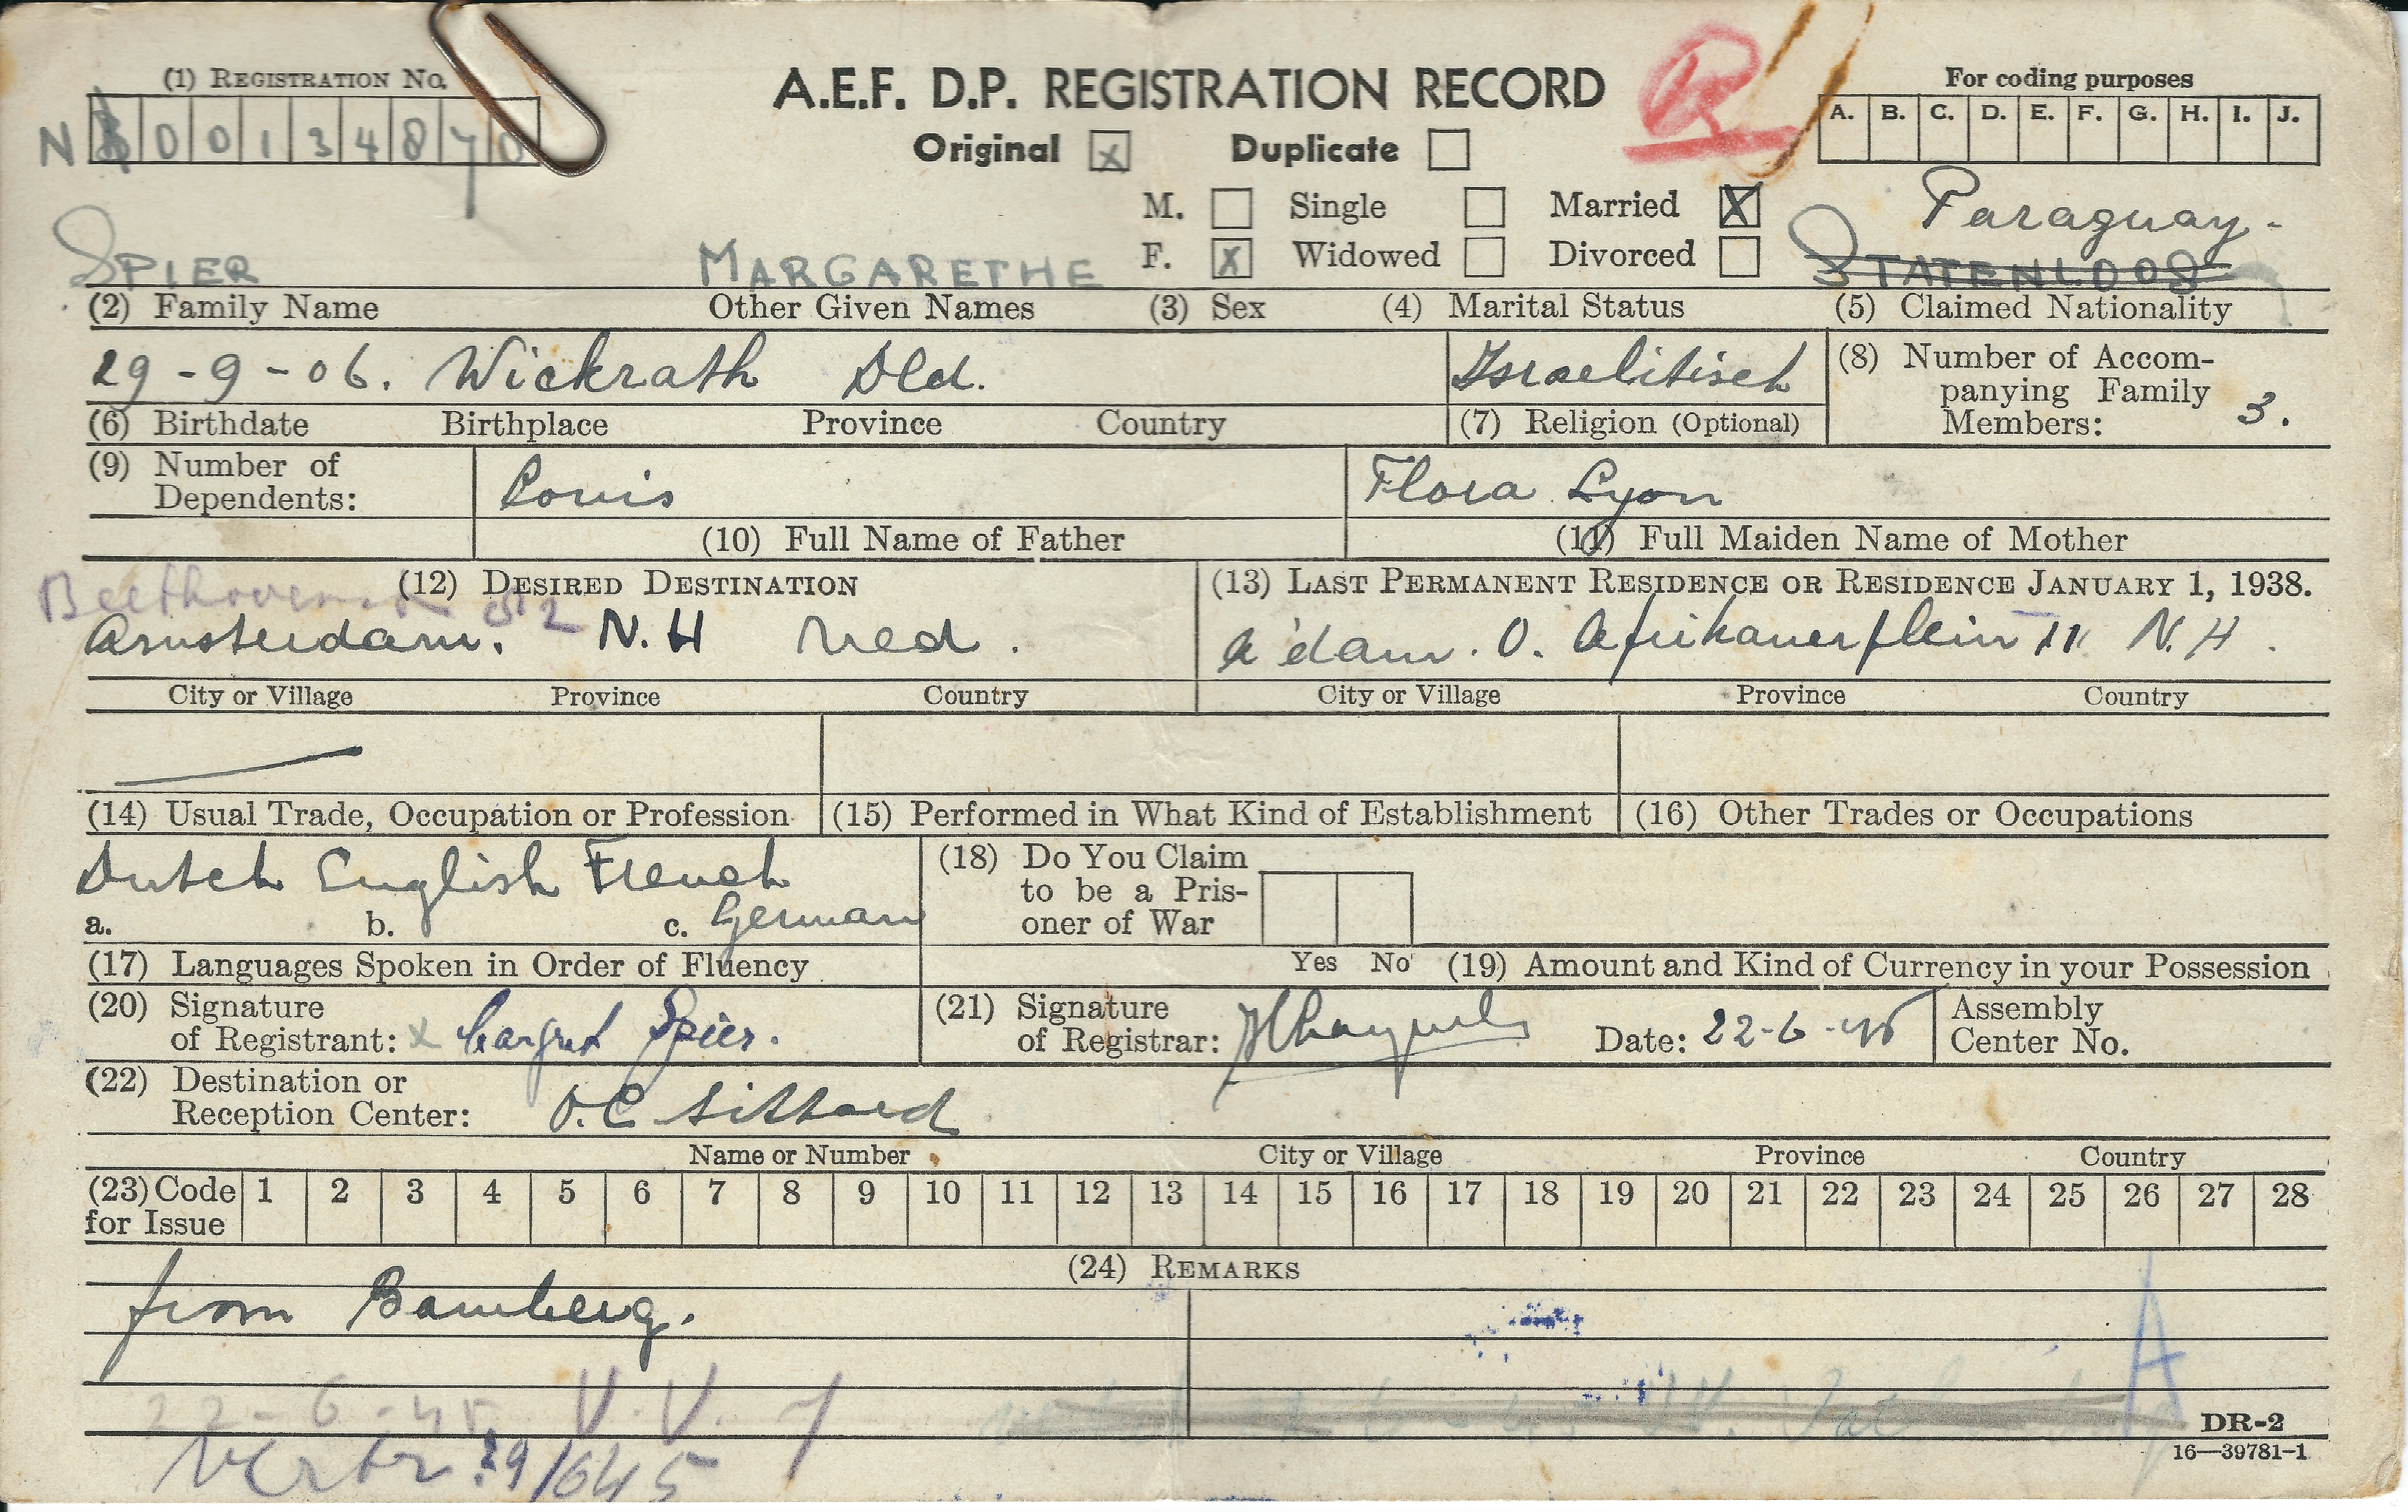 (1) REGISTRATION No.
N 0 0 1 3 4 8 7 0
A.E.F. D.P. REGISTRATION RECORD
Original x Duplicate
R
For coding purposes
A. B. C. D. E. F. G. H. I. J.
M. Single Married X
F. X Widowed Divorced
Paraguay.
SPIER MARGARETHE STATENLOOS
(2) Family Name Other Given Names (3) Sex (4) Marital Status (5) Claimed Nationality
29-9-06. Wickrath Dld. Israelitisch
(6) Birthdate Birthplace Province Country (7) Religion (Optional)
(8) Number of Accom-
panying Family
Members: 3.
(9) Number of
Dependents:
Louis
(10) Full Name of Father
Flora Lyon
(11) Full Maiden Name of Mother
(12) DESIRED DESTINATION
(13) LAST PERMANENT RESIDENCE OR RESIDENCE JANUARY 1, 1938.
Amsterdam. N.H Ned.
A'dam. O. Afrikanerplein 11 N.H.
City or Village Province Country City or Village Province Country
(14) Usual Trade, Occupation or Profession (15) Performed in What Kind of Establishment (16) Other Trades or Occupations
Dutch English French
a. b. c. German
(17) Languages Spoken in Order of Fluency
(18) Do You Claim
to be a Pris-
oner of War
Yes No (19) Amount and Kind of Currency in your Possession
(20) Signature
of Registrant: x Margret Spier.
(21) Signature
of Registrar:
Date: 22-6-45
Assembly
Center No.
(22) Destination or
Reception Center: O.C Sittard
Name or Number City or Village Province Country
(23) Code
for Issue
1 2 3 4 5 6 7 8 9 10 11 12 13 14 15 16 17 18 19 20 21 22 23 24 25 26 27 28
(24) REMARKS
from Bamberg.
A
22-6-45 V.V.
Vertr. 29/6 45
DR-2
16—39781-1